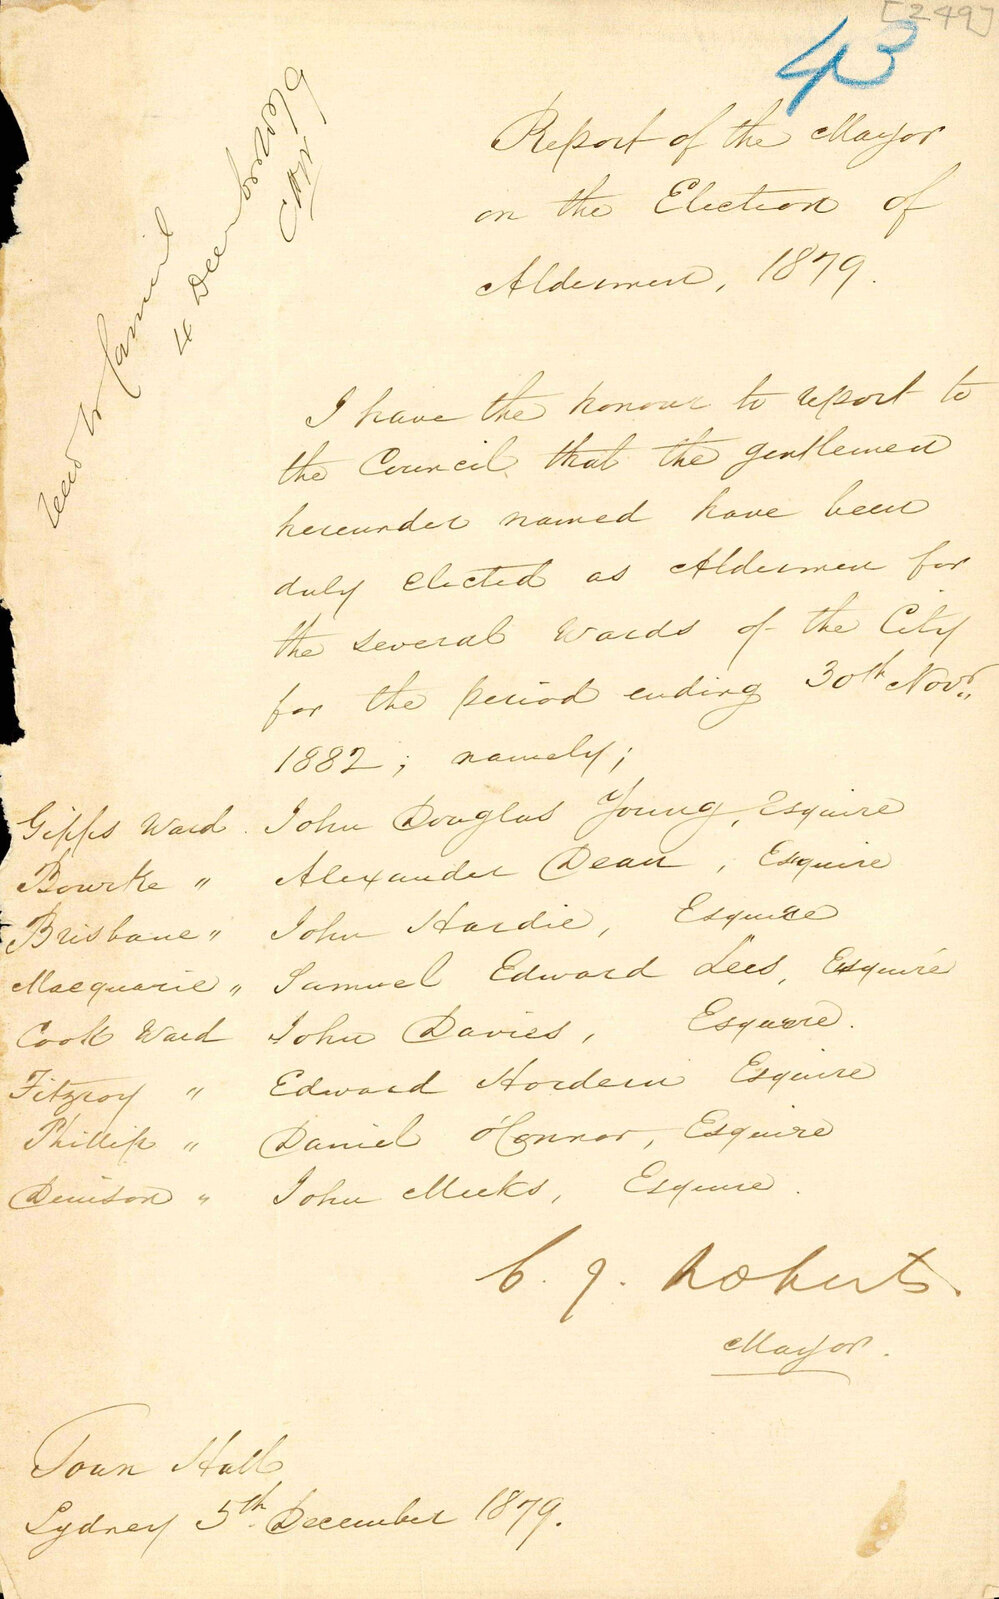 [249]
43
Report of the Mayor
on the Election of
Aldermen, 1879.
Council
4 December 1879
I have the honour to report to
the Council, that the gentlemen
hereunder named have been
duly elected as Aldermen for
the several Wards of the City
for the period ending 30th Novr.
1882; namely;
Gipps Ward. John Douglas Young, Esquire
Bourke " Alexander Dean, Esquire
Brisbane " John Hardie, Esquire
Macquarie " Samuel Edward Lees, Esquire
Cook Ward John Davies, Esquire.
Fitzroy " Edward Hordern Esquire
Phillip " Daniel O'Connor, Esquire
Denison " John Meeks, Esquire.
C. J. Roberts.
Mayor.
Town Hall
Sydney 5th December 1879.